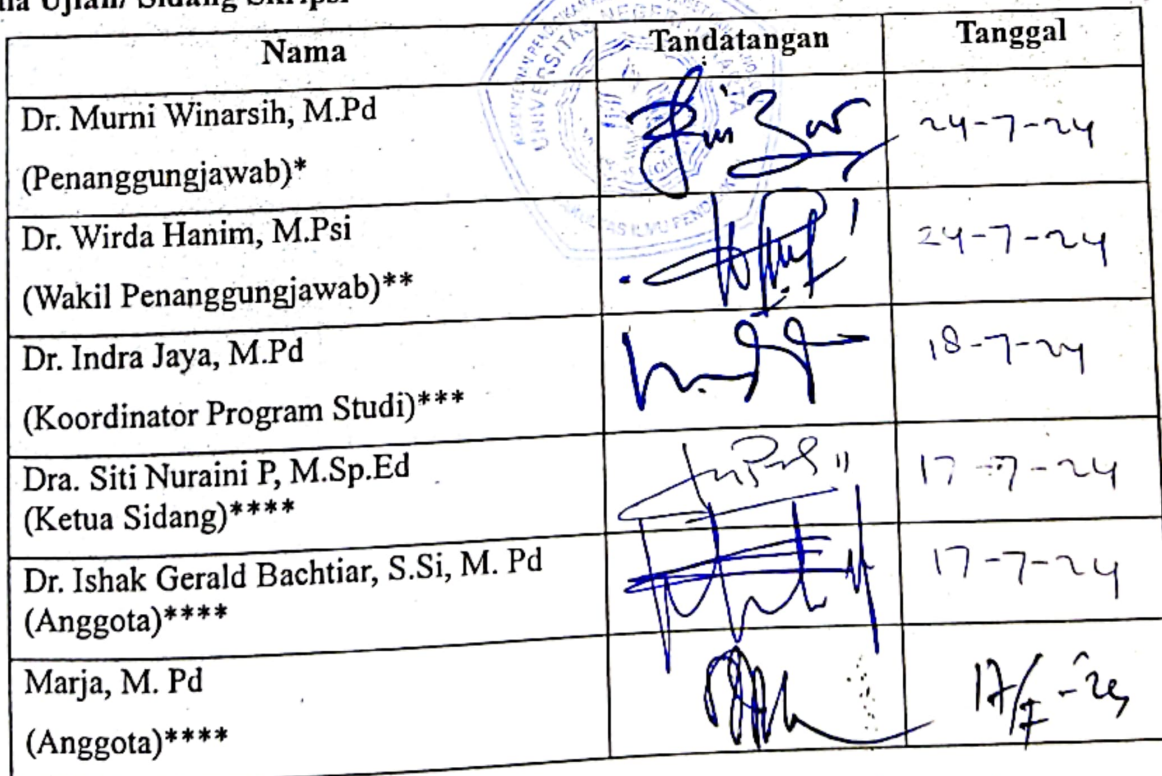 Ujian/ Sidang Skripsi
Nama Tandatangan Tanggal
Dr. Murni Winarsih, M.Pd
(Penanggungjawab)*
24-7-24
Dr. Wirda Hanim, M.Psi
(Wakil Penanggungjawab)**
24-7-24
Dr. Indra Jaya, M.Pd
(Koordinator Program Studi)***
18-7-24
Dra. Siti Nuraini P, M.Sp.Ed
(Ketua Sidang)****
17-7-24
Dr. Ishak Gerald Bachtiar, S.Si, M. Pd
(Anggota)****
17-7-24
Marja, M. Pd
(Anggota)****
17/7-24